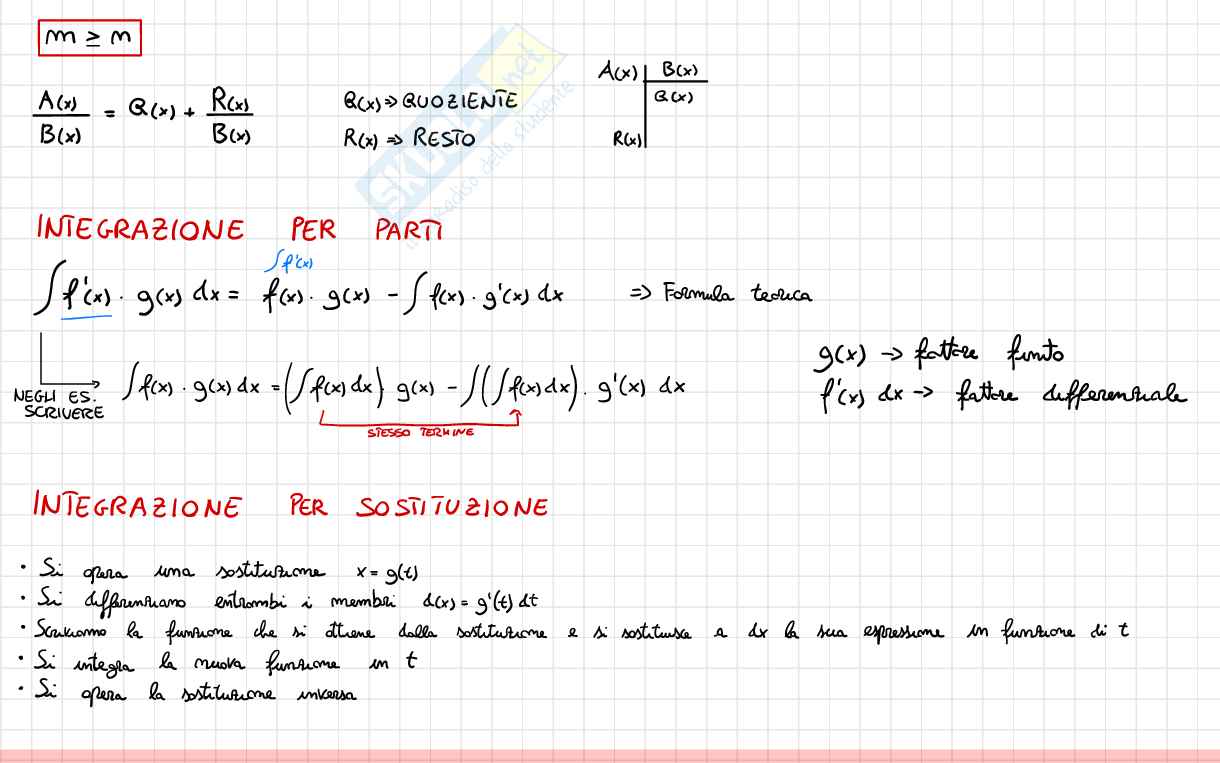 m ≥ n
A(x)/B(x) = Q(x) + R(x)/B(x)
Q(x) => QUOZIENTE
R(x) => RESTO
A(x) | B(x)
Q(x)
R(x)
SKUOLA.net
il paradiso dello studente
INTEGRAZIONE PER PARTI
∫f'(x)
∫f'(x) · g(x) dx = f(x) · g(x) - ∫f(x) · g'(x) dx => Formula teorica
g(x) -> fattore finito
f'(x) dx -> fattore differenziale
NEGLI ES.
SCRIVERE
∫f(x) · g(x) dx = (∫f(x) dx) g(x) - ∫(∫f(x) dx) · g'(x) dx
STESSO TERMINE
INTEGRAZIONE PER SOSTITUZIONE
· Si opera una sostituzione x = g(t)
· Si differenziano entrambi i membri d(x) = g'(t) dt
· Scriviamo la funzione che si ottiene dalla sostituzione e si sostituisce a dx la sua espressione in funzione di t
· Si integra la nuova funzione in t
· Si opera la sostituzione inversa